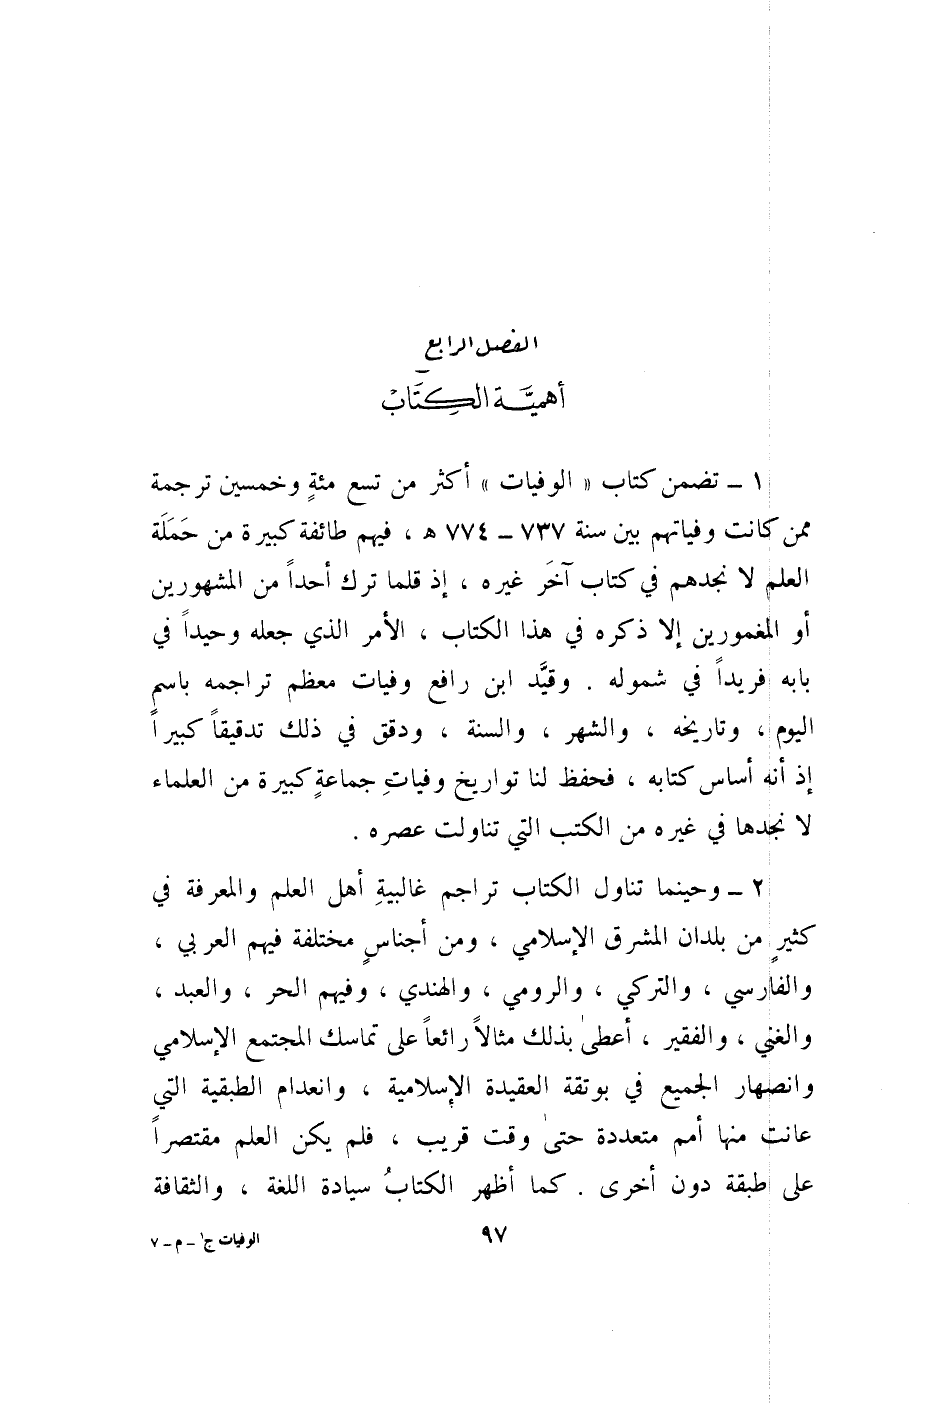 الفصل الرابع
أهميَّة الكِتَاب
١ ـ تضمن كتاب « الوفيات » أكثر من تسع مئةٍ وخمسين ترجمة
ممن كانت وفياتهم بين سنة ٧٣٧ ـ ٧٧٤ هـ ، فيهم طائفة كبيرة من حَمَلَة
العلم لا نجدهم في كتاب آخَر غيره ، إذ قلما ترك أحداً من المشهورين
أو المغمورين إلا ذكره في هذا الكتاب ، الأمر الذي جعله وحيداً في
بابه فريداً في شموله . وقيَّد ابن رافع وفيات معظم تراجمه باسم
اليوم ، وتاريخه ، والشهر ، والسنة ، ودقق في ذلك تدقيقاً كبيراً
إذ أنه أساس كتابه ، فحفظ لنا تواريخ وفياتِ جماعةٍ كبيرة من العلماء
لا نجدها في غيره من الكتب التي تناولت عصره .
٢ ـ وحينما تناول الكتاب تراجم غالبيةِ أهل العلم والمعرفة في
كثيرٍ من بلدان المشرق الإسلامي ، ومن أجناسٍ مختلفة فيهم العربي ،
والفارسي ، والتركي ، والرومي ، والهندي ، وفيهم الحر ، والعبد ،
والغني ، والفقير ، أعطىٰ بذلك مثالاً رائعاً على تماسك المجتمع الإسلامي
وانصهار الجميع في بوتقة العقيدة الإسلامية ، وانعدام الطبقية التي
عانت منها أمم متعددة حتىٰ وقت قريب ، فلم يكن العلم مقتصراً
على طبقة دون أخرى . كما أظهر الكتابُ سيادة اللغة ، والثقافة
٩٧
الوفيات ج١ ـ م ـ ٧